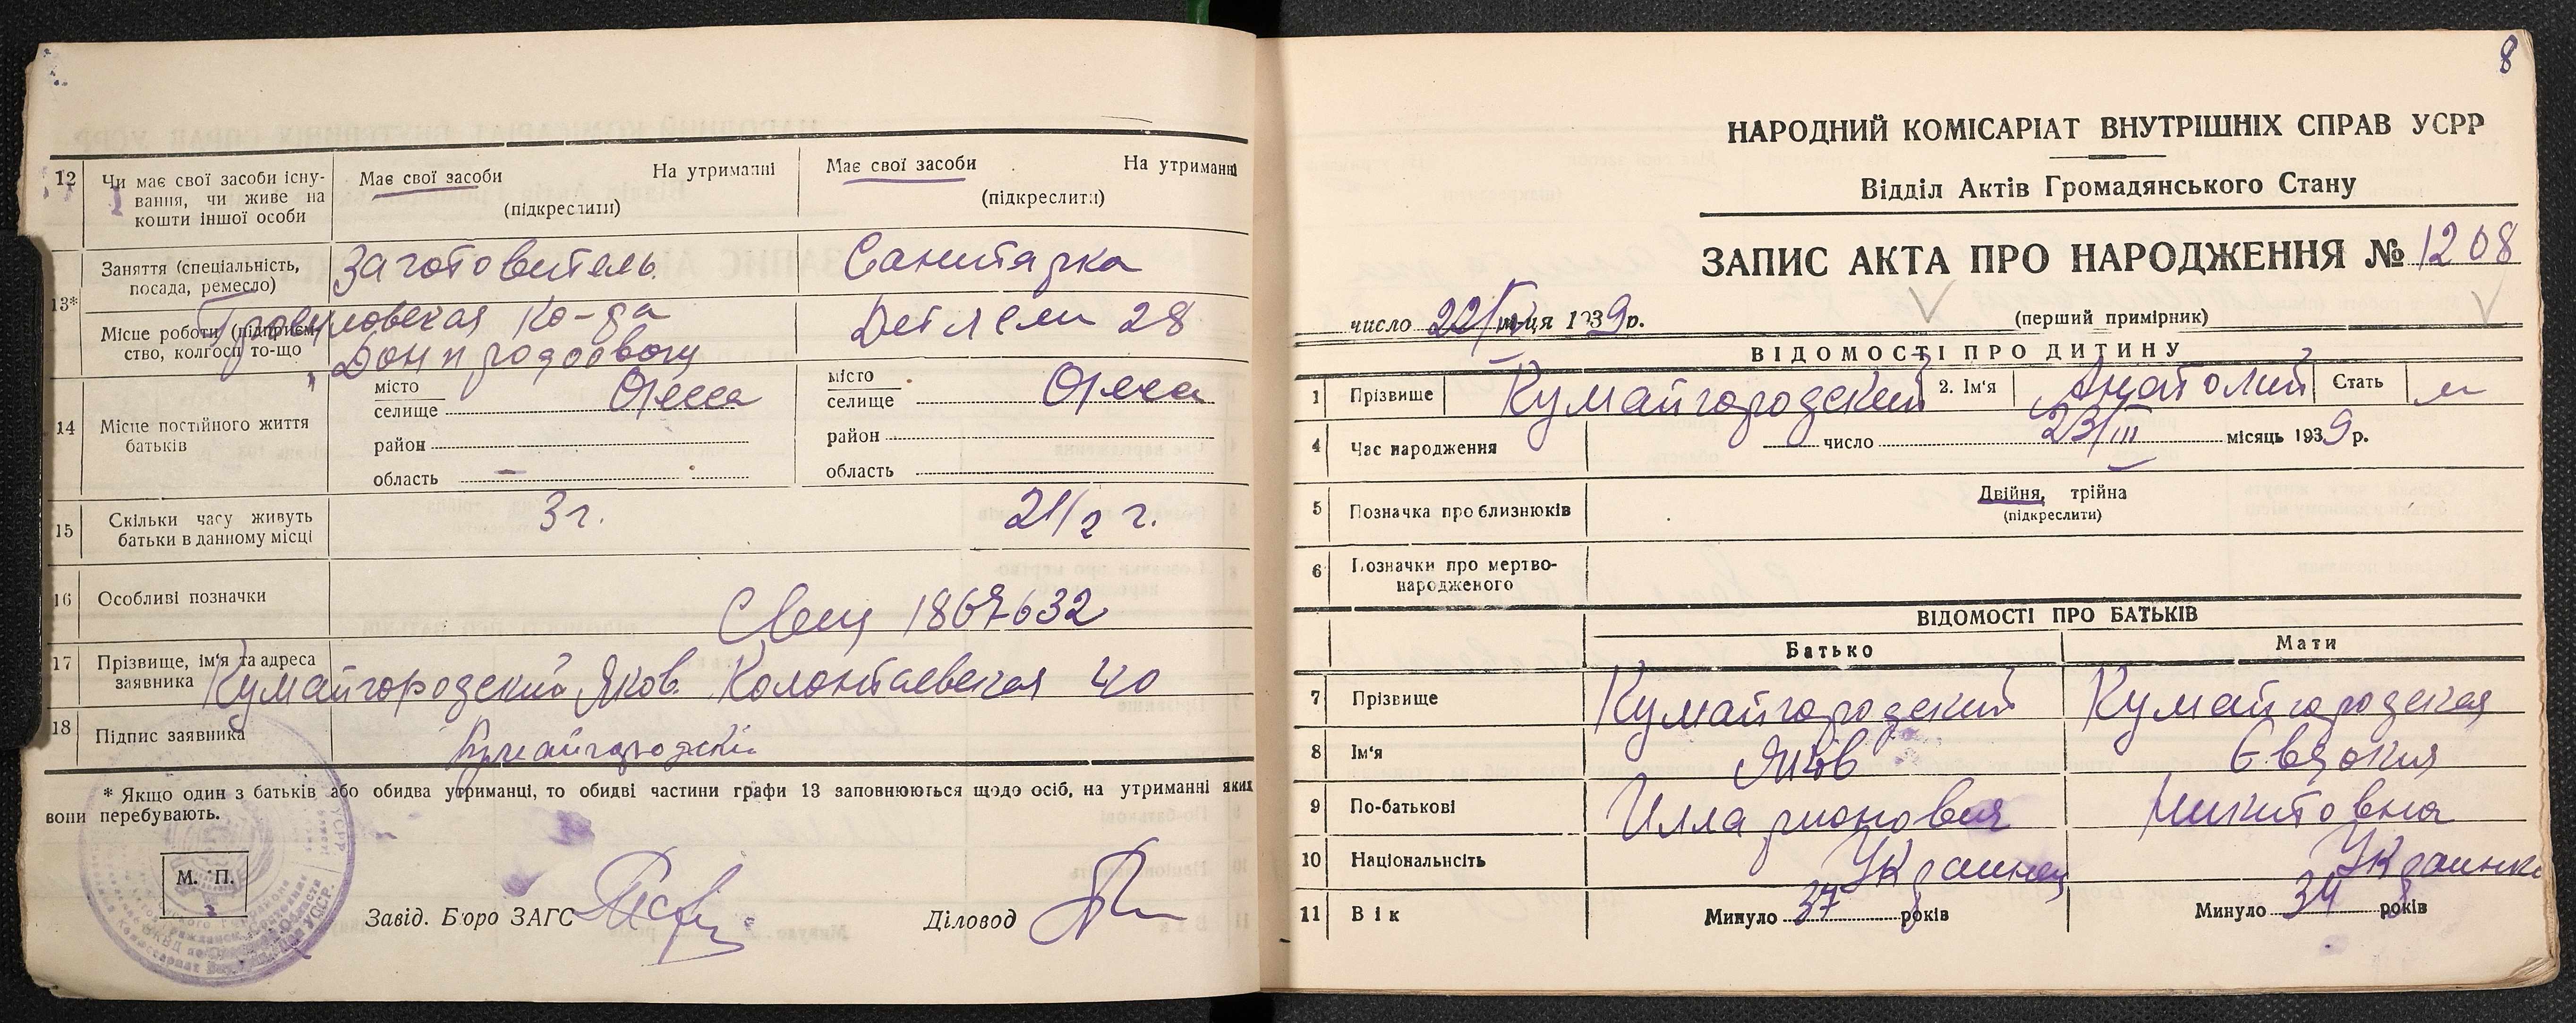 12 Чи має свої засоби існу-
вання, чи живе на
кошти іншої особи
Має свої засоби На утриманні
(підкреслити)
Має свої засоби На утриманні
(підкреслити)
13*
Заняття (спеціальність,
посада, ремесло)
Заготовитель
Санитарка
Місце роботи (підприєм-
ство, колгосп то-що
ко-да
Детясли 28
14 Місце постійного життя
батьків
місто
селище Одесса
район
область —
місто
селище Одесса
район
область
15 Скільки часу живуть
батьки в данному місці
3 г.
2 1/2 г.
16 Особливі позначки
1867632
17 Прізвище, ім'я та адреса
заявника
Кумайгородский Яков. Колонтаевская 40
18 Підпис заявника
Кумайгородскі
* Якщо один з батьків або обидва утриманці, то обидві частини графи 13 заповнюються щодо осіб, на утриманні яких
вони перебувають.
М. П.
Завід. Бюро ЗАГС
Діловод
8
НАРОДНИЙ КОМІСАРІАТ ВНУТРІШНІХ СПРАВ УСРР
Відділ Актів Громадянського Стану
ЗАПИС АКТА ПРО НАРОДЖЕННЯ № 1208
число 22/IV м-ця 1939р.
(перший примірник)
ВІДОМОСТІ ПРО ДИТИНУ
1 Прізвище Кумайгородский 2. Ім'я Анатолий Стать м
4 Час народження число 23/III місяць 1939 р.
5 Позначка про близнюків
Двійня, трійна
(підкреслити)
6 Позначки про мертво-
народженого
ВІДОМОСТІ ПРО БАТЬКІВ
Батько Мати
7 Прізвище Кумайгородский Кумайгородская
8 Ім'я Яков Евдокия
9 По-батькові Илларионович Никитовна
10 Національність Украинец Украинка
11 Вік Минуло 37 років Минуло 34 років